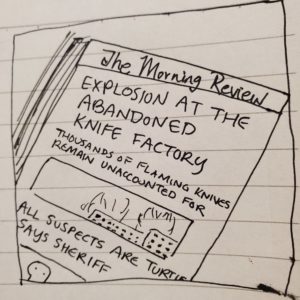 The Morning Review
EXPLOSION AT THE
ABANDONED
KNIFE FACTORY
THOUSANDS OF FLAMING KNIVES
REMAIN UNACCOUNTED FOR
ALL SUSPECTS ARE TURTLE
SAYS SHERIFF